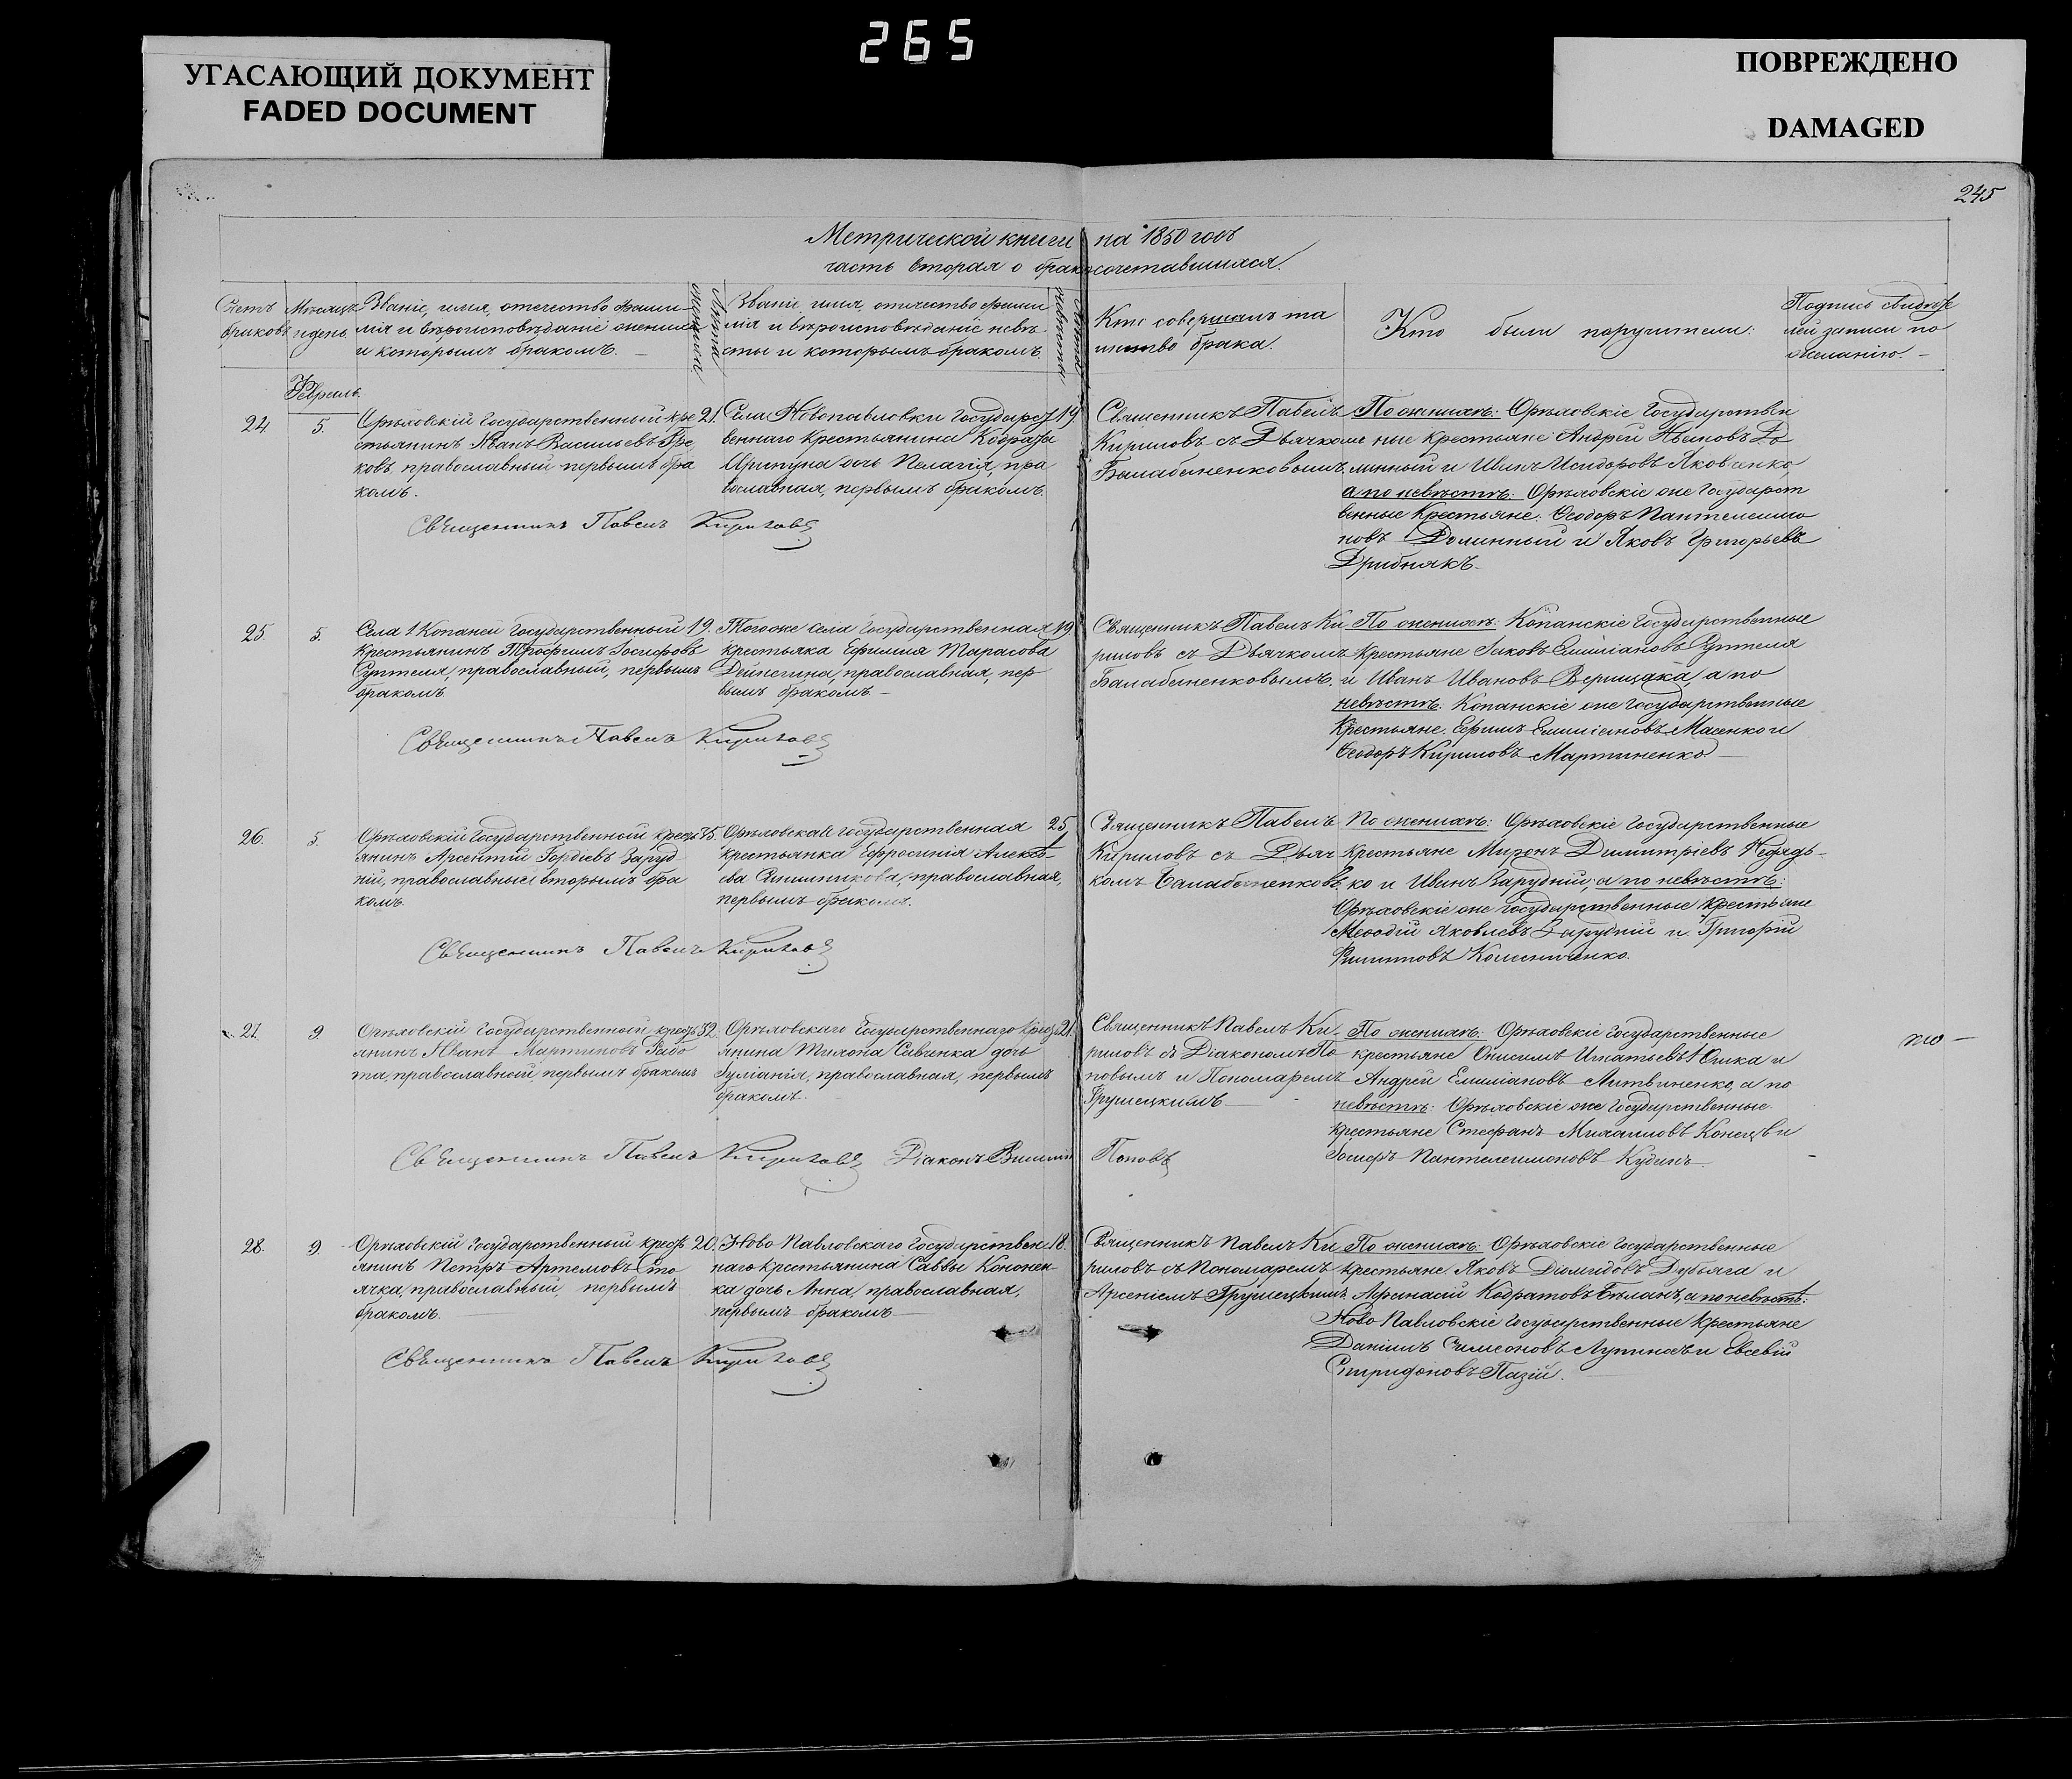 265
УГАСАЮЩИЙ ДОКУМЕНТ
FADED DOCUMENT
ПОВРЕЖДЕНО
DAMAGED
245
Метрической книги на 1850 годъ
часть вторая о бракосочетавшихся.
Счетъ браковъ
Мѣсяцъ и день
Званіе, имя, отечество фами
лія и вѣроисповѣданіе жениха
и которымъ бракомъ.
Лѣта жениха
Званіе имя, отечество фами
лія и вѣроисповѣданіе невѣ
сты и которымъ бракомъ.
Лѣта невѣсты
Кто совершалъ та
инство брака.
Кто были поручители:
Подпись свидѣте
лей записи по
желанію.
Февраль.
24
5.
Орѣховскій Государственный кре
стьянинъ Иванъ Васильевъ Гре
ковъ, православный первымъ бра
комъ.
21.
Села Новопавловки Государст
веннаго крестьянина Кодрата
дочь Пелагія, пра
вославная, первымъ бракомъ.
19
Священникъ Павелъ
Кириловъ съ Дьячкомъ
Балабаненковымъ.
По женихѣ: Орѣховскіе Государствен
ные крестьяне: Андрей До
линный и Иванъ Исидоровъ Яковенко
а по невѣстѣ: Орѣховскіе же Государст
венные Крестьяне: Ѳеодоръ Пантелеимо
новъ Долинный и Яковъ Григорьевъ
Дрибнякъ.
Священникъ Павелъ Кириловъ
25
5.
Села 1 Копаней Государственный
Крестьянинъ Трофимъ Іосифовъ
православный, первымъ
бракомъ.
19.
Тогоже села Государственная
крестьянка Ефимія Тарасова
Дейнегина, православная, пер
вымъ бракомъ
19
Священникъ Павелъ Ки
риловъ съ Дьячкомъ
Балабаненковымъ.
По женихѣ: Копанскіе Государственные
Крестьяне Іаковъ Емиліановъ
и Иванъ Ивановъ Верещака, а по
невѣстѣ: Копанскіе же Государственные
Крестьяне: Ефимъ Емиліановъ Масенко и
Ѳеодоръ Кириловъ Мартиненко.
Священникъ Павелъ Кириловъ
26.
5.
Орѣховскій Государственный крест
янинъ Арсентій Гордіевъ Заруд
ній, православный вторымъ бра
комъ.
35.
Орѣховская Государственная
крестьянка Ефросинія Алексѣ
ева православная,
первымъ бракомъ.
25
Священникъ Павелъ
Кириловъ съ Дьяч
комъ Балабаненковъ
По женихѣ: Орѣховскіе Государственные
Крестьяне Миронъ Димитріевъ
ко и Иванъ Зарудній; а по невѣстѣ:
Орѣховскіе же Государственные Крестьяне
Меѳодій Яковлевъ Зарудній и Григорій
Филиповъ Колесниченко.
Священникъ Павелъ Кириловъ
27.
9
Орѣховскій Государственный крест
янинъ Иванъ Мартиновъ
та, православной первымъ бракомъ
32.
Орѣховскаго Государственнаго Крест
янина Тихона Савченка дочь
Іуліанія, православная, первымъ
бракомъ.
21.
Священникъ Павелъ Ки
риловъ съ Діакономъ По
повымъ и Пономаремъ
Грушецкимъ
По женихѣ: Орѣховскіе Государственные
крестьяне Онисимъ Игнатьевъ и
Андрей Емиліановъ Литвиненко, а по
невѣстѣ: Орѣховскіе же Государственные
крестьяне Стефанъ Михаиловъ и
Іосифъ Пантелеимоновъ
Священникъ Павелъ Кириловъ Діаконъ Поповъ
28.
9.
Орѣховскій Государственный крест
янинъ Петръ Артемовъ Сто
ячка, православный, первымъ
бракомъ.
20.
Ново Павловскаго Государствен
наго крестьянина Саввы Кононен
ка дочь Анна, православная,
первымъ бракомъ
18.
Священникъ Павелъ Ки
риловъ съ Пономаремъ
Арсеніемъ Грушецкимъ
По женихѣ: Орѣховскіе Государственные
крестьяне Яковъ Діомидовъ Дубяга и
Афанасій Кодратовъ Бѣланъ, а по невѣстѣ:
Ново Павловскіе Государственные Крестьяне
Даніилъ Симеоновъ и Евсевій
Спиридоновъ Пазій.
Священникъ Павелъ Кириловъ